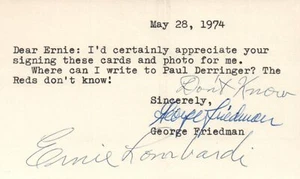 May 28, 1974
Dear Ernie: I'd certainly appreciate your
signing these cards and photo for me.
Where can I write to Paul Derringer? The
Reds don't know!
Don't Know
Sincerely,
George Friedman
George Friedman
Ernie Lombardi